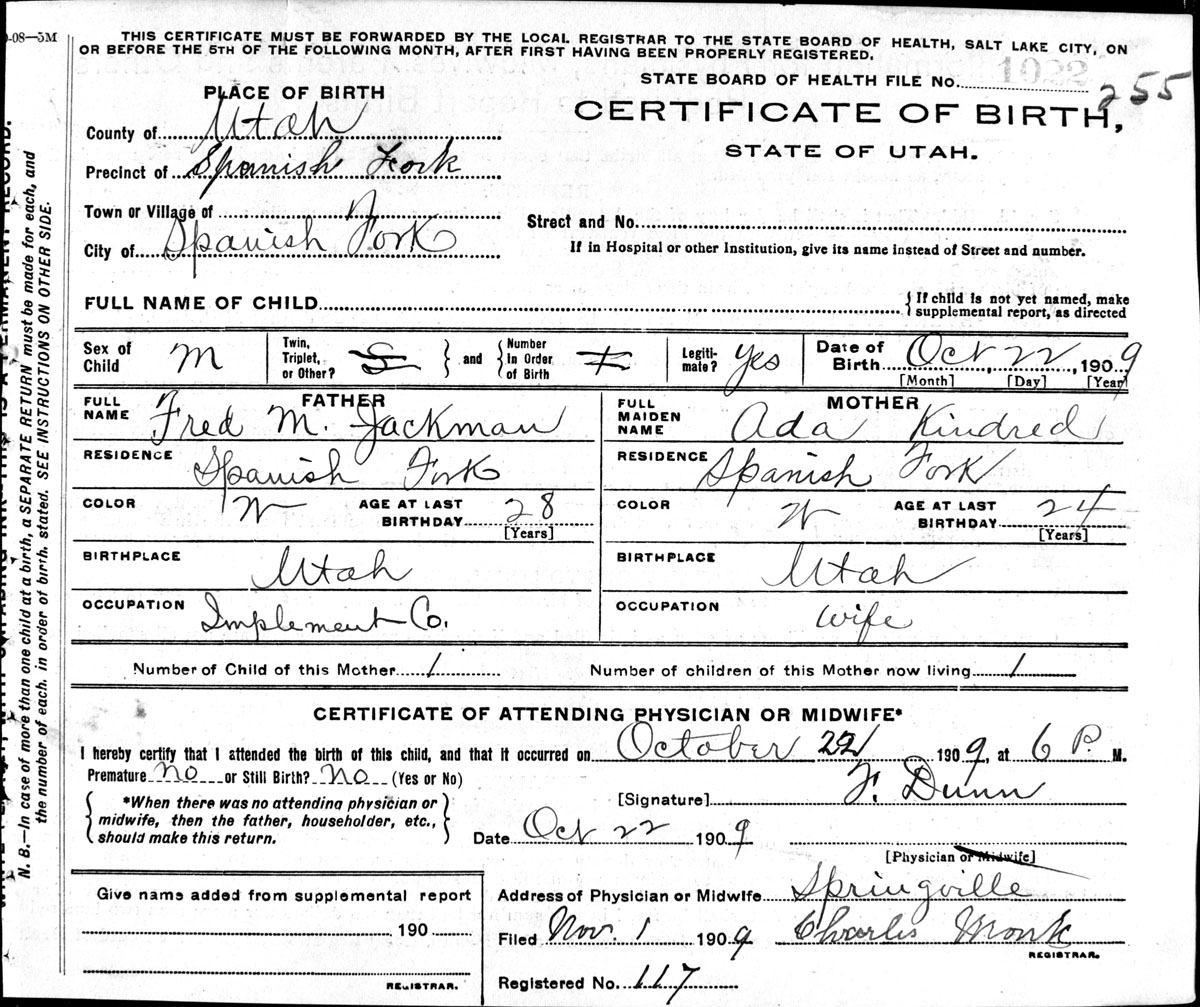 0-08—5M
THIS CERTIFICATE MUST BE FORWARDED BY THE LOCAL REGISTRAR TO THE STATE BOARD OF HEALTH, SALT LAKE CITY, ON
OR BEFORE THE 5TH OF THE FOLLOWING MONTH, AFTER FIRST HAVING BEEN PROPERLY REGISTERED.
STATE BOARD OF HEALTH FILE No. 1022 255
PLACE OF BIRTH
CERTIFICATE OF BIRTH,
STATE OF UTAH.
County of Utah
Precinct of Spanish Fork
Town or Village of
City of Spanish Fork
Street and No.
If in Hospital or other Institution, give its name instead of Street and number.
FULL NAME OF CHILD
{If child is not yet named, make
supplemental report, as directed
Sex of Child M
Twin, Triplet, or Other? S } and { Number In Order of Birth 1
Legiti-mate? Yes
Date of Birth Oct, 22, 1909
[Month] [Day] [Year]
FATHER
FULL NAME Fred M. Jackman
RESIDENCE Spanish Fork
COLOR W AGE AT LAST BIRTHDAY 28
[Years]
BIRTHPLACE Utah
OCCUPATION Implement Co.
MOTHER
FULL MAIDEN NAME Ada Kindred
RESIDENCE Spanish Fork
COLOR W AGE AT LAST BIRTHDAY 24
[Years]
BIRTHPLACE Utah
OCCUPATION Wife
Number of Child of this Mother 1 Number of children of this Mother now living 1
CERTIFICATE OF ATTENDING PHYSICIAN OR MIDWIFE*
I hereby certify that I attended the birth of this child, and that it occurred on October 22, 1909, at 6 P. M.
Premature No or Still Birth? No (Yes or No)
{ *When there was no attending physician or
midwife, then the father, householder, etc.,
should make this return. }
[Signature] F. Dunn
Date Oct 22 1909
[Physician or Midwife]
Give name added from supplemental report
190
REGISTRAR.
Address of Physician or Midwife Springville
Filed Nov. 1 1909 Charles Monk
REGISTRAR.
Registered No. 117
N. B.—In case of more than one child at a birth, a SEPARATE RETURN must be made for each, and
the number of each, in order of birth, stated. SEE INSTRUCTIONS ON OTHER SIDE.